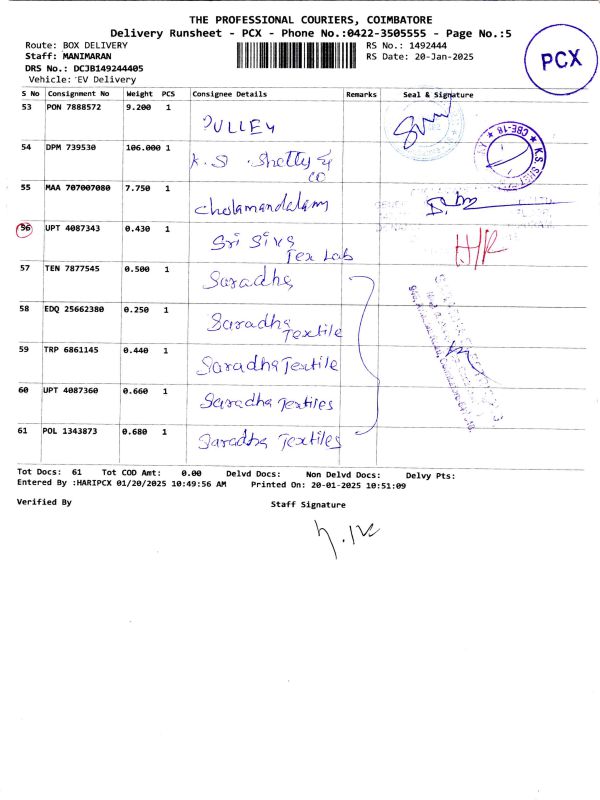 THE PROFESSIONAL COURIERS, COIMBATORE
Delivery Runsheet - PCX - Phone No.:0422-3505555 - Page No.:5
Route: BOX DELIVERY RS No.: 1492444
Staff: MANIMARAN RS Date: 20-Jan-2025
DRS No.: DCJB149244405
Vehicle: EV Delivery
PCX
S No Consignment No Weight PCS Consignee Details Remarks Seal & Signature
53 PON 7888572 9.200 1 PULLEY
54 DPM 739530 106.000 1 K.S. Shetty &
CO
CBE-18
55 MAA 707007080 7.750 1 Cholamandalam
56 UPT 4087343 0.430 1 Sri Siva
Tex Lab
57 TEN 7877545 0.500 1 Saradha
58 EDQ 25662380 0.250 1 Saradha
Textile
59 TRP 6861145 0.440 1 Saradha Textile
60 UPT 4087360 0.660 1 Saradha Textiles
61 POL 1343873 0.680 1 Saradha Textiles
Tot Docs: 61 Tot COD Amt: 0.00 Delvd Docs: Non Delvd Docs: Delvy Pts:
Entered By :HARIPCX 01/20/2025 10:49:56 AM Printed On: 20-01-2025 10:51:09
Verified By Staff Signature